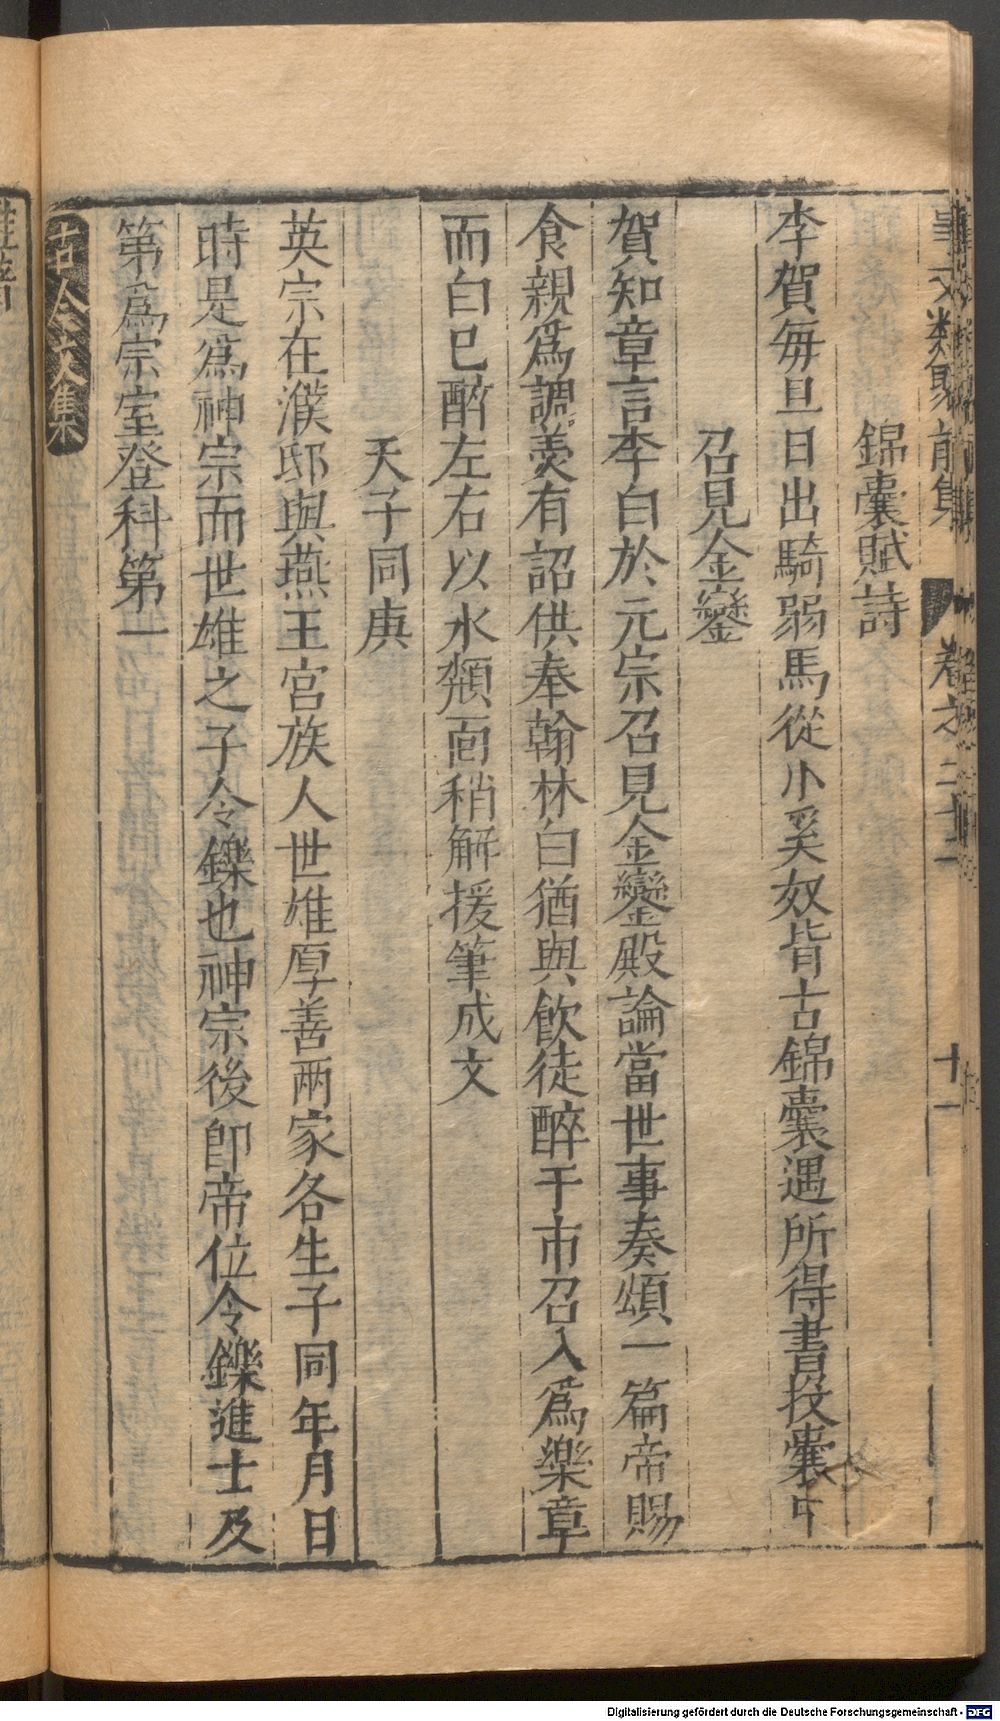 事文類聚前集 卷之二十二 十一
錦囊賦詩
李賀每旦日出騎弱馬從小奚奴背古錦囊遇所得書投囊中
召見金鑾
賀知章言李白於元宗召見金鑾殿論當世事奏頌一篇帝賜
食親爲調羹有詔供奉翰林白猶與飲徒醉于市召入爲樂章
而白已醉左右以水頮面稍解援筆成文
天子同庚
英宗在濮邸與燕王宮族人世雄厚善兩家各生子同年月日
時是爲神宗而世雄之子令鑠也神宗後卽帝位令鑠進士及
第爲宗室登科第一
古今文集
雜著
Digitalisierung gefördert durch die Deutsche Forschungsgemeinschaft - DFG